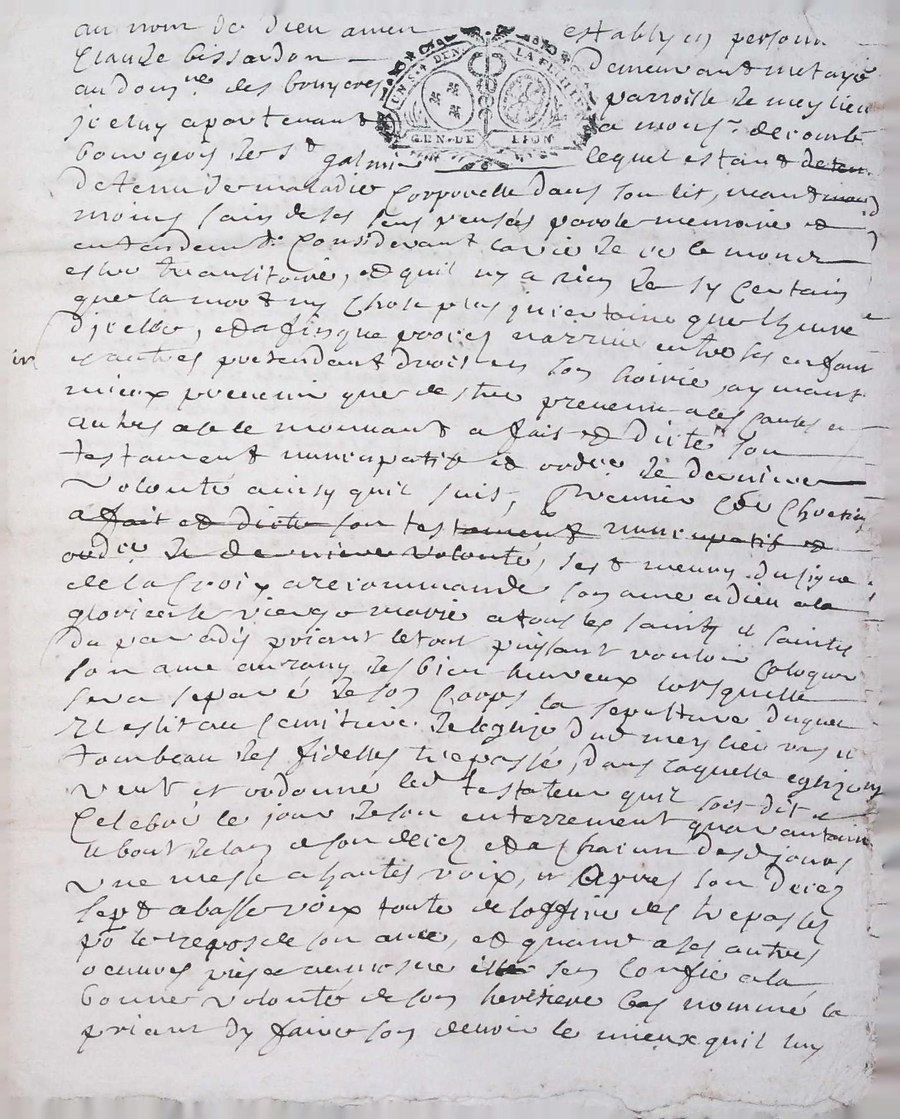 au nom de dieu amen establÿ en personne
Claude bissardon demeurant metayé
au dom.ne des bruyeres parroisse de meylieu
UN S. 4 DEN. LA FEUILLE
jceluy apartenant a mons.r decombe
GEN. DE LION
bourgeois de S.t galmi lequel estant deten
detenu de maladie Corporelle dans son lit, neant
moins sain de ses sens pensés parole memoire et
entendem.t Considerant la vie de ce monde
estre transitoire, et quil ny a rien de sy Certain
que la mort ny Chose plus jncertaine que lheure
dicelle, et afin que proces narrive entre ses enfans
et autres pretendant droits en son hoirie, aymant
mieux prevenir que destre prevenu a ses Causes et
autres a ce le mouvant a fait et dicté son
testament nuncupatif et ord.re de derniere
volonté ainsy quil suit, Premier Chretien
a fait et dicté son testament nuncupatif et
ord.re de derniere volonté, sest meuny du signe
de la Croix a recommandé son ame a dieu a la
glorieuse vierge marie a tous les saints et saintes
du paradis priant le tout puissant vouloir Coloquer
son ame au rang des bien heureux lorsquelle
sera separé de son Corps la sepulture duquel
Il eslit au Cemitiere de leglize dud. meylieu
tombeau des fidelles trepassé, dans laquelle eglize
veut et ordonne led. testateur quil soit dit et
Celebré le jour de son enterrement quarantaine
et bout de lan de son decez et a chacun desd. jours
une messe a hautes voix, et Apres son decez
sept a basse voix toute de loffice des trepassés
po.r le repos de son ame, et quant a ses autres
oeuvres pies et aumosne il sen Confie a la
bonne volonté de son heritiere bas nommé la
priant dy faire son devoir le mieux quil luy